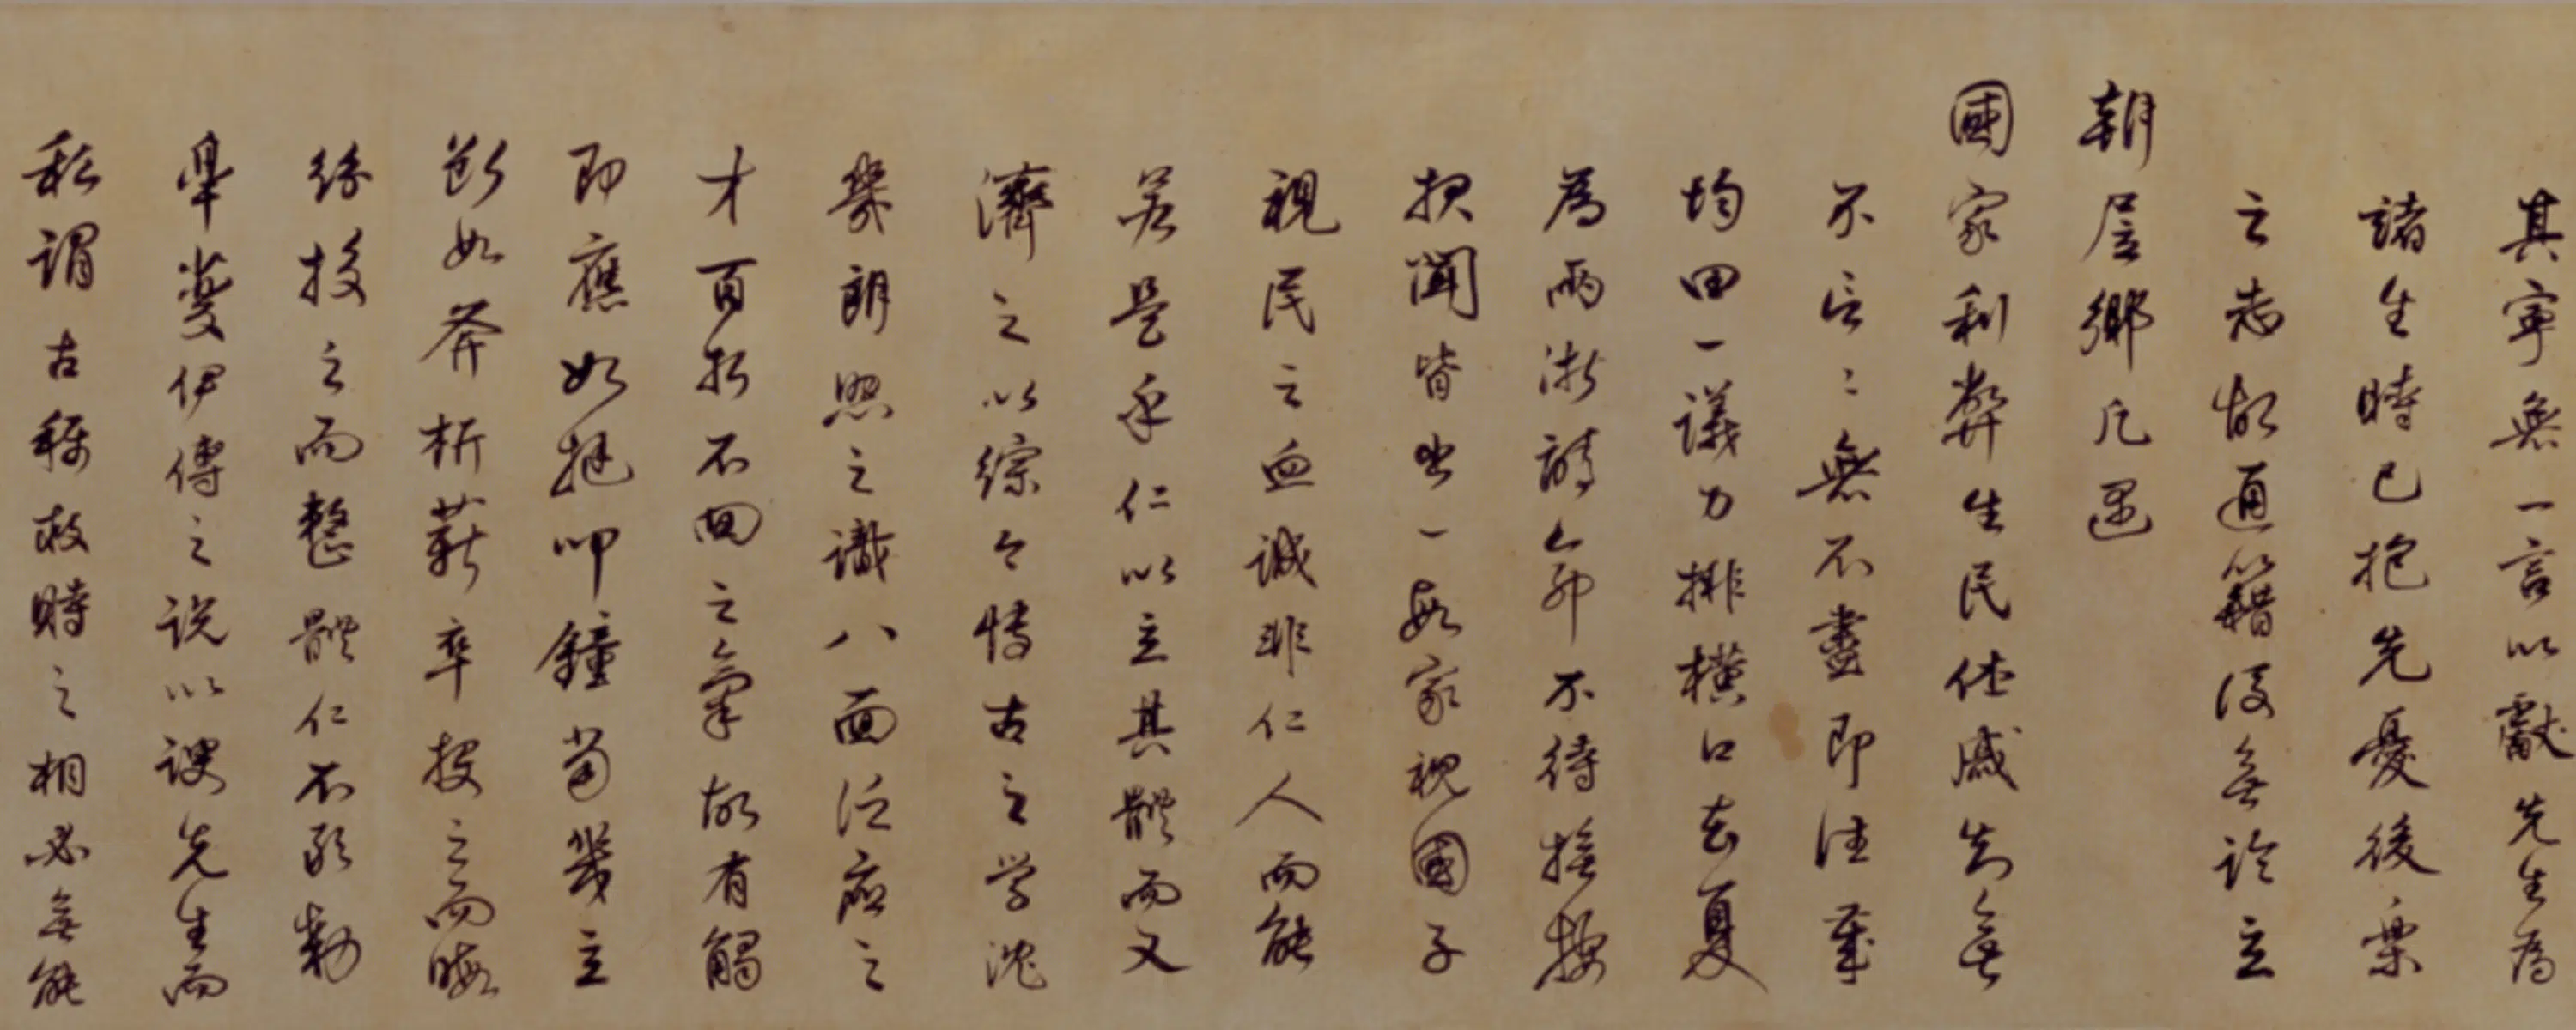 其寧無一言以獻先生為
諸生時已抱先憂後樂
之志故通籍後無論立
朝居鄉凡遇
國家利弊生民休戚知無
不言言無不盡即往歲
均田一議力排橫口去夏
為兩浙請命不待撫按
報聞皆出一段家視國子
視民之血誠非仁人而能
若是乎仁以立其體而又
濟之以綜今博古之學沈
幾朗照之識八面泛應之
才百折不回之氣故有觸
即應如挺叩鐘當幾立
斷如斧析薪卒投之而暇
紛投之而整體仁不敢勦
皋夔伊傅之說以諛先生而
私謂古稱救時之相必無能